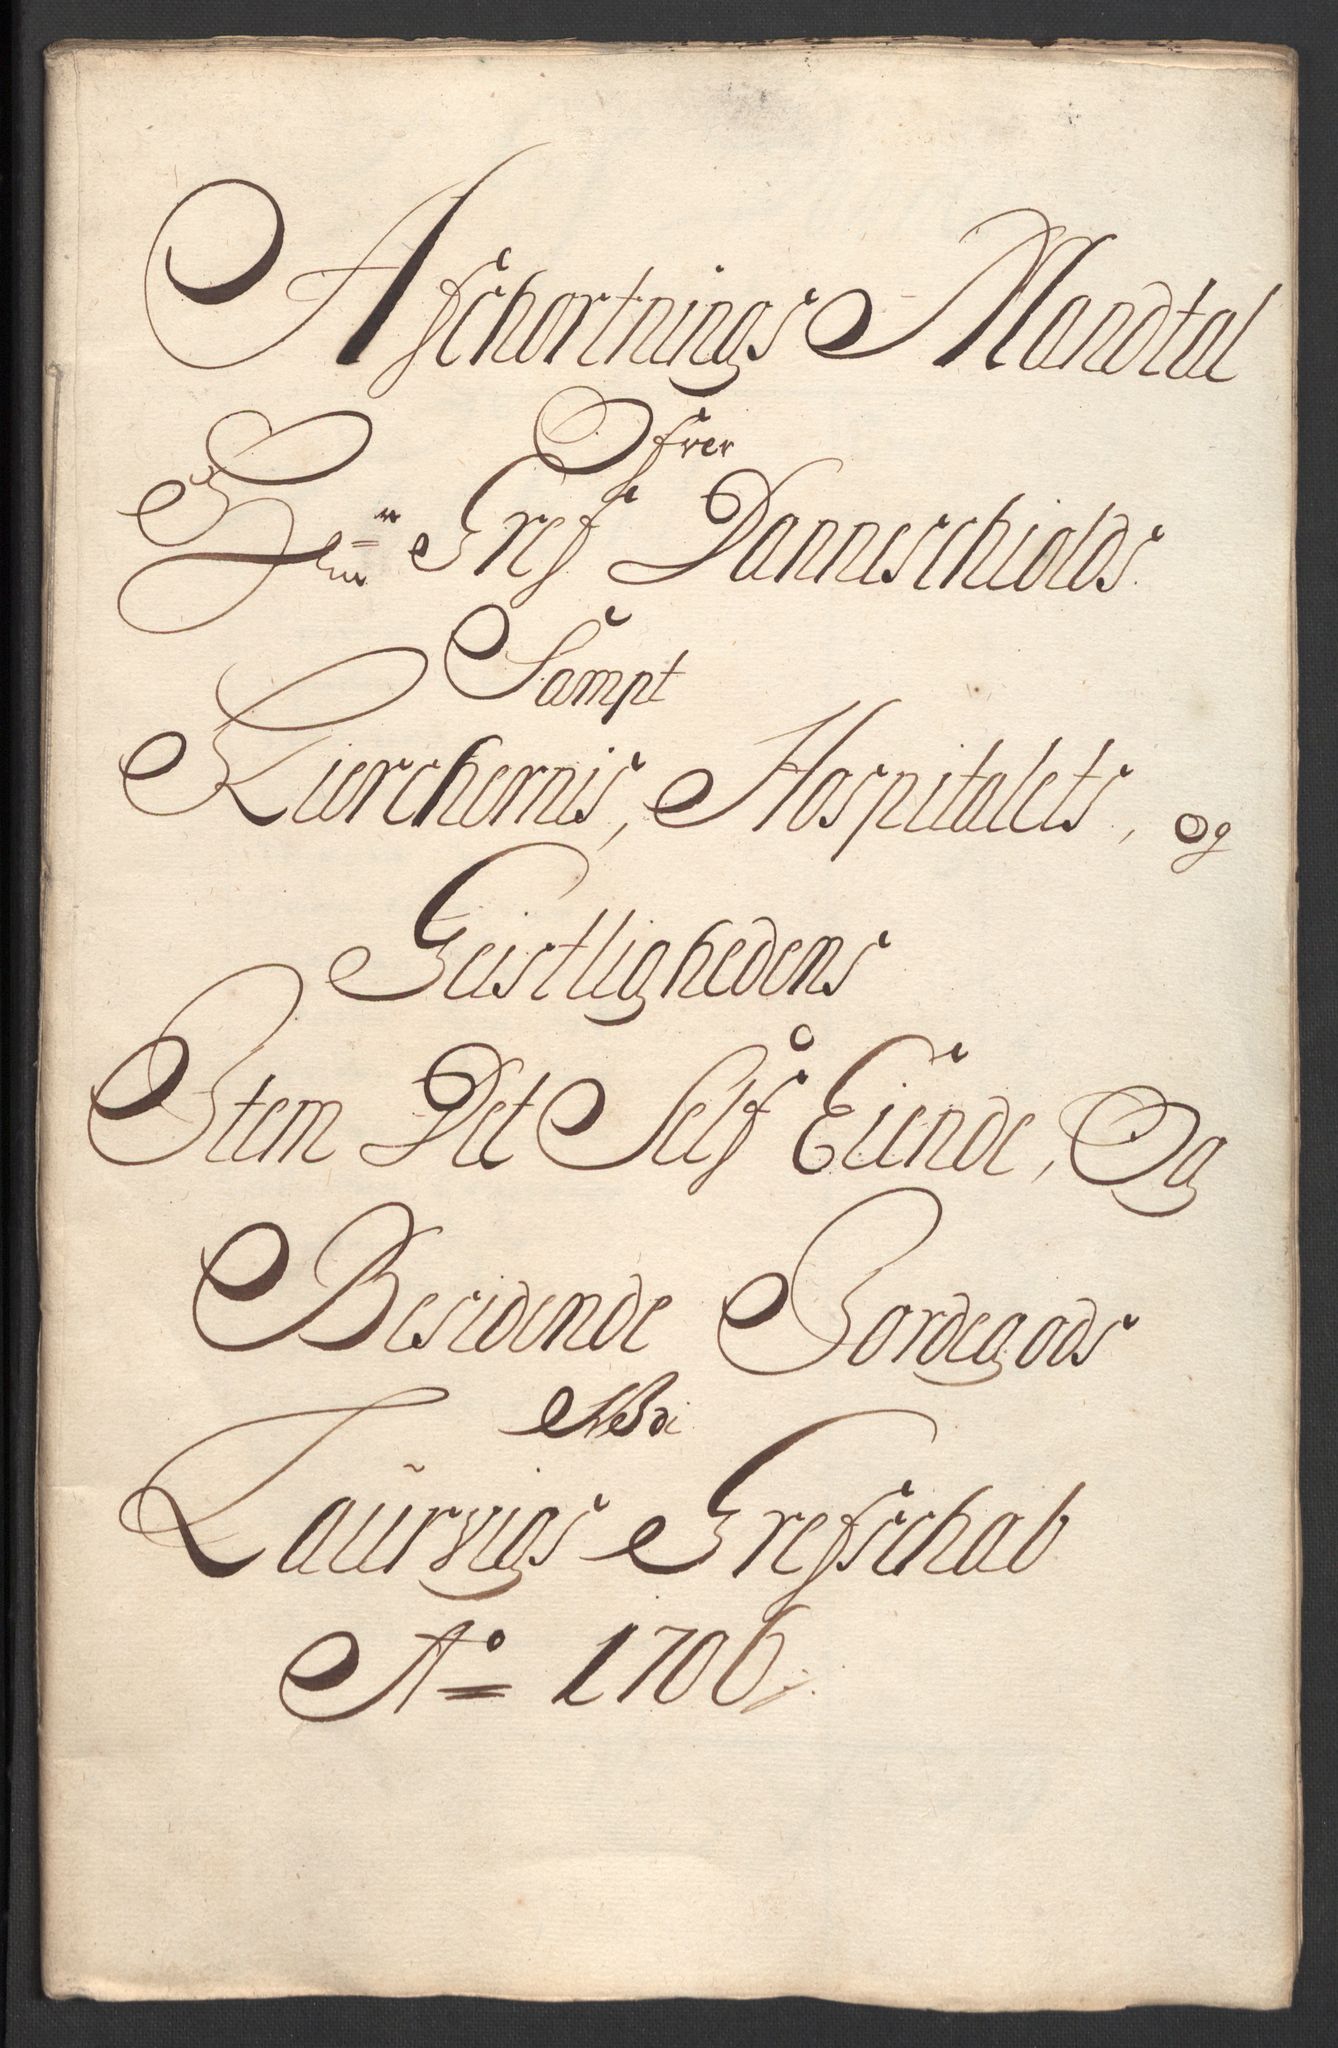 Afschortnings Mandtal
Ofver
Hr. Gref Danneschiolds
Sampt
Kierchernis, Hospitalets, og
Geistlighedens
Item Det Self Eiende, Og
Besidende Jordegods
Udi
Laurvigs Grefschab
Ao 1706